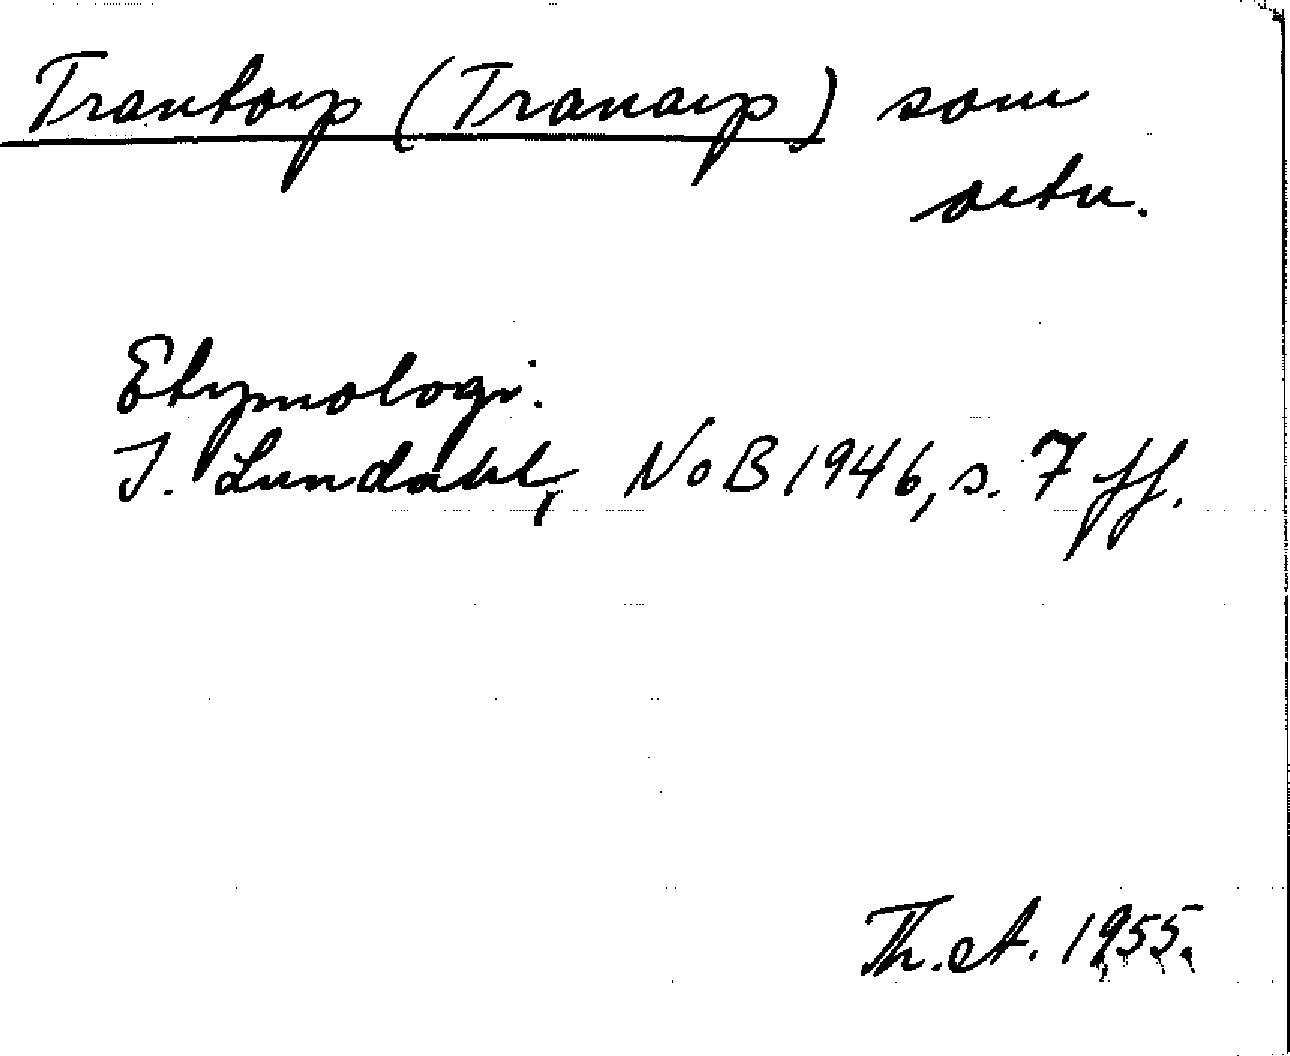 Trantorp (Tranarp) som
ortn.
Etymologi:
I. Lundahl, NoB 1946, s. 7 ff.
Th. A. 1955.